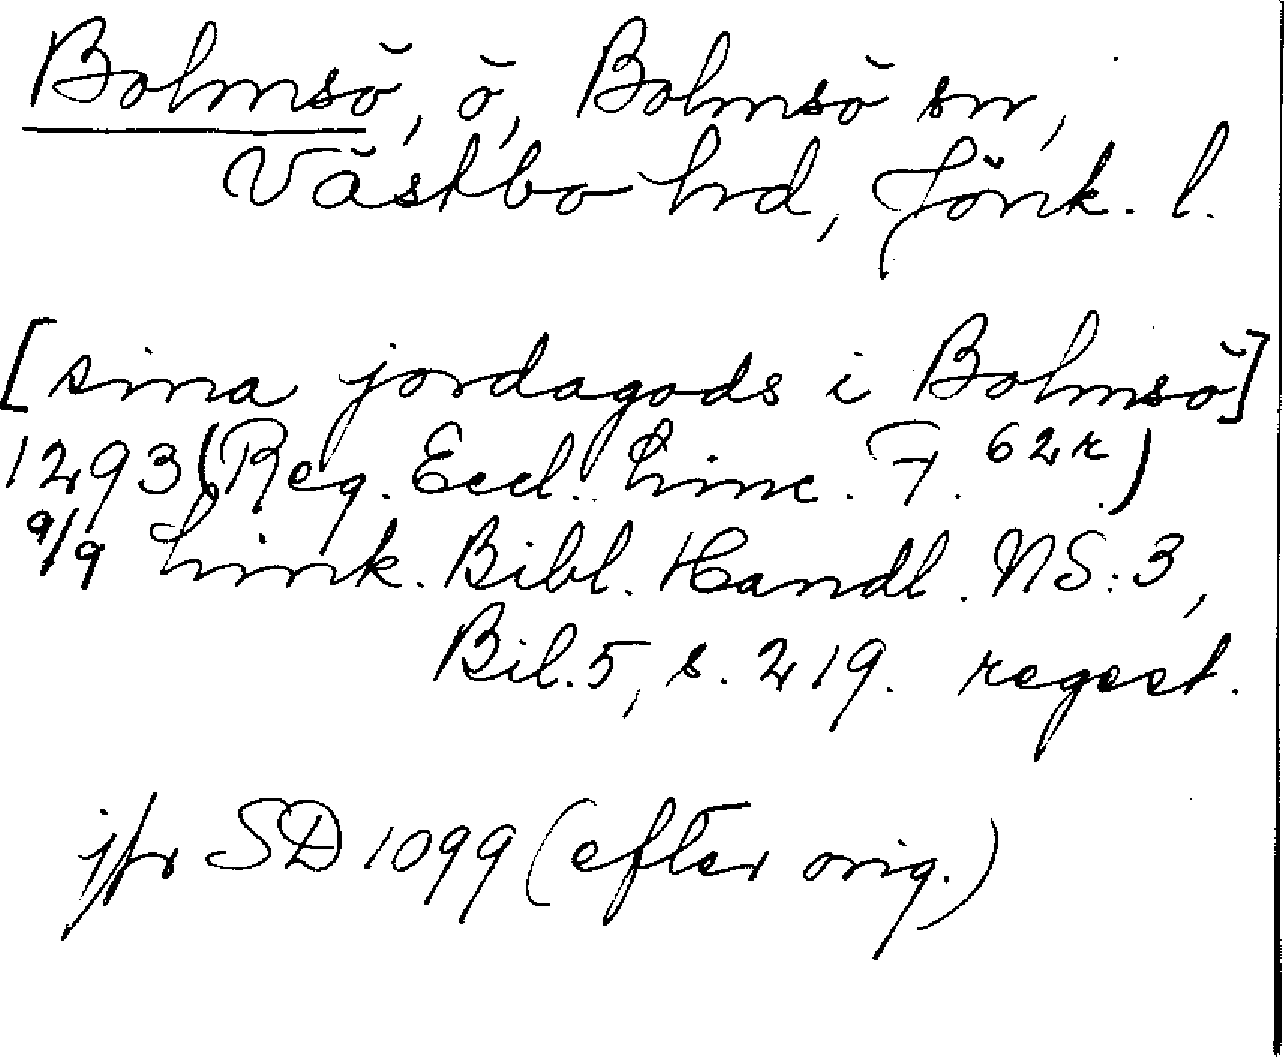 Bolmsö, ö, Bolmsö sn,
Västbo hd, Jönk. l.
[sina jordagods i Bolmsö]
1293 (Reg. Eccl. Linc. F. 62r.)
9/9 Link. Bibl. Handl. NS: 3,
Bil. 5, s. 219. regest.
jfr SD 1099 (efter orig.)